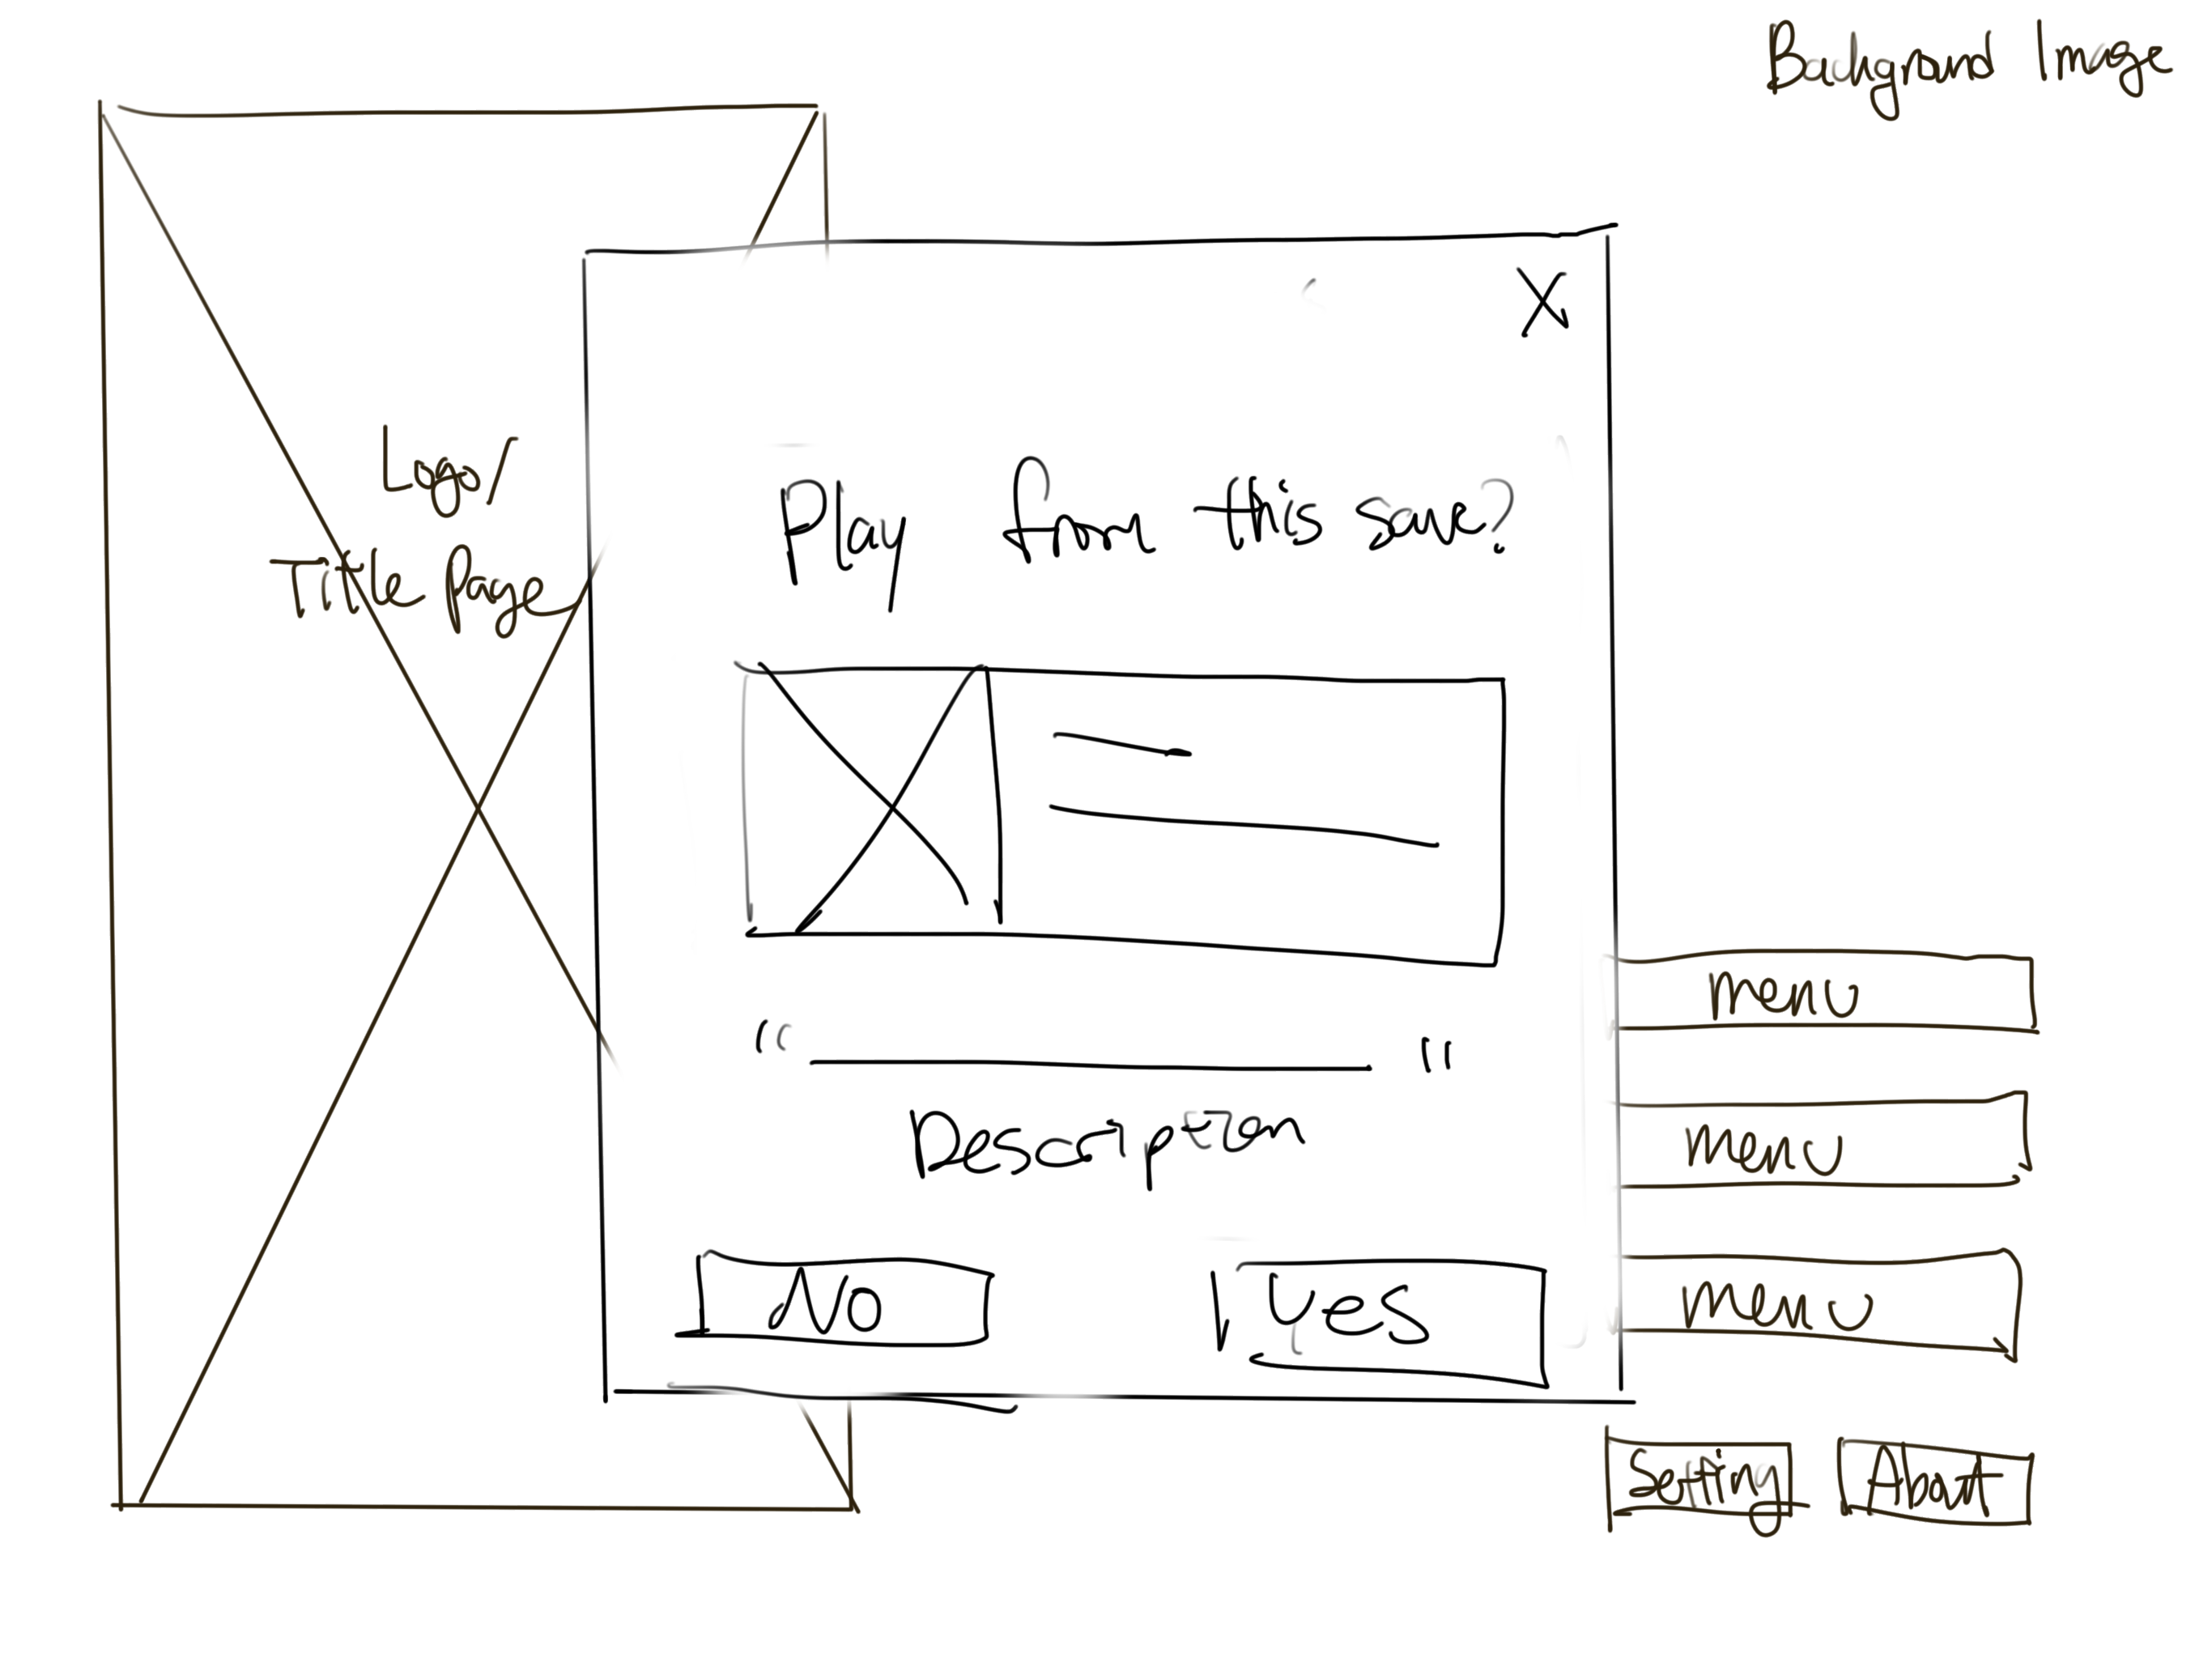 Background Image
Logo/
Title Page
X
Play from this save?
" "
Description
No
Yes
menu
menu
menu
Setting
About